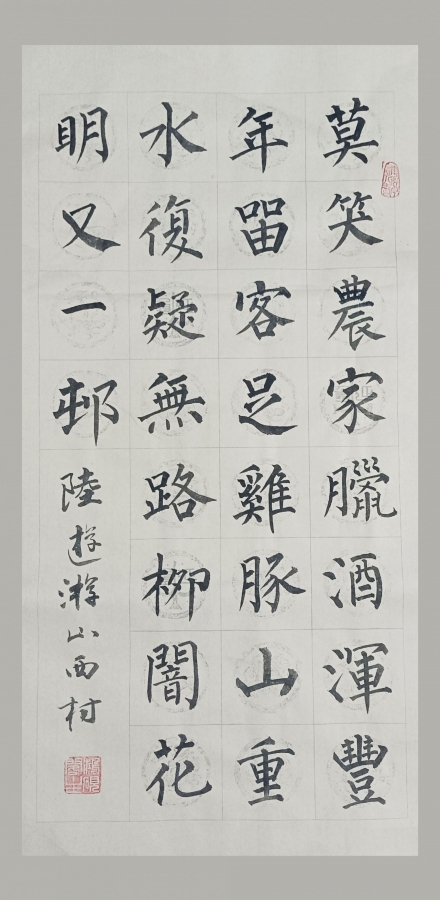 莫笑農家臘酒渾豐
年畱客足雞豚山重
水復疑無路柳闇花
明又一邨
陸游游山西村